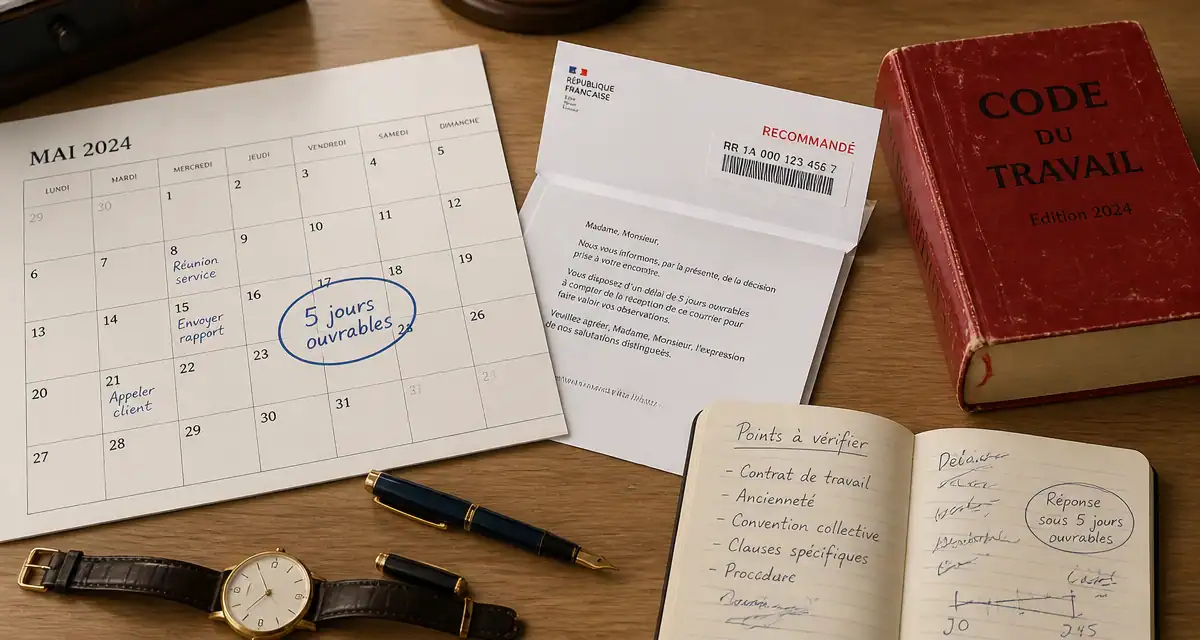 MAI 2024
LUNDI MARDI MERCREDI JEUDI VENDREDI SAMEDI DIMANCHE
29 30 1 2 3 4 5
6 7 8 9 10 11 12
Réunion
service
13 14 15 16 17 18 19
Envoyer
rapport
5 jours
ouvrables
20 21 22 23 25 26
Appeler
client
27 28 29 30 31
RÉPUBLIQUE
FRANÇAISE
RECOMMANDÉ
RR 1A 000 123 456 7
Madame, Monsieur,
Nous vous informons, par la présente, de la décision
prise à votre encontre.
Vous disposez d'un délai de 5 jours ouvrables
à compter de la réception de ce courrier pour
faire valoir vos observations.
Veuillez agréer, Madame, Monsieur, l'expression
de nos salutations distinguées.
CODE
DU
TRAVAIL
Edition 2024
Points à vérifier
- Contrat de travail
- Ancienneté
- Convention collective
- Clauses spécifiques
- Procédure
Réponse
sous 5 jours
ouvrables